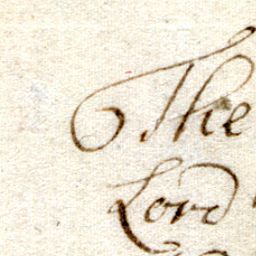 The
Lord